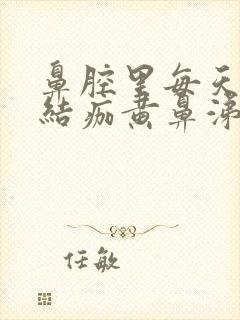 鼻腔里每天
结痂黄鼻涕
任敏